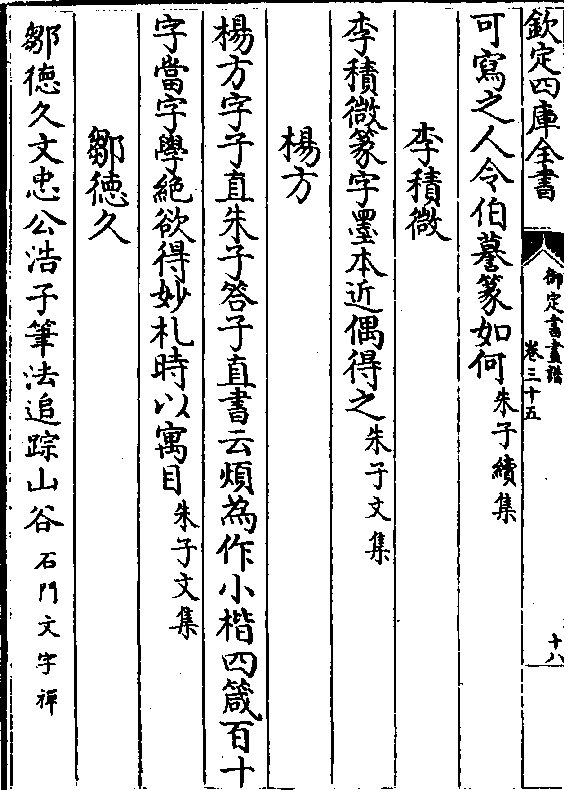 欽定四庫全書
御定書畫譜
卷三十五
十八
可寫之人令伯謩篆如何朱子續集
李積微
李積微篆字墨本近偶得之朱子文集
楊方
楊方字子直朱子答子直書云煩為作小楷四箴百十
字當字學絶欲得妙札時以寓目朱子文集
鄒徳久
鄒徳久文忠公浩子筆法追踪山谷石門文字禪